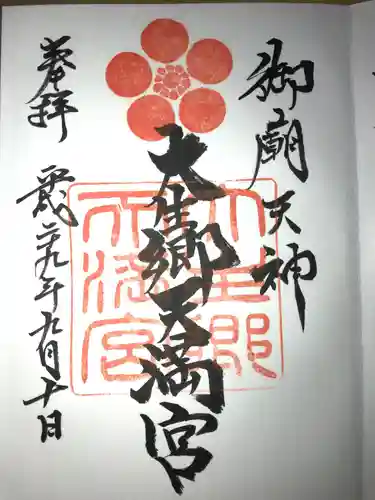 御廟天神
大生郷天満宮
奉拝
平成二十九年九月十日